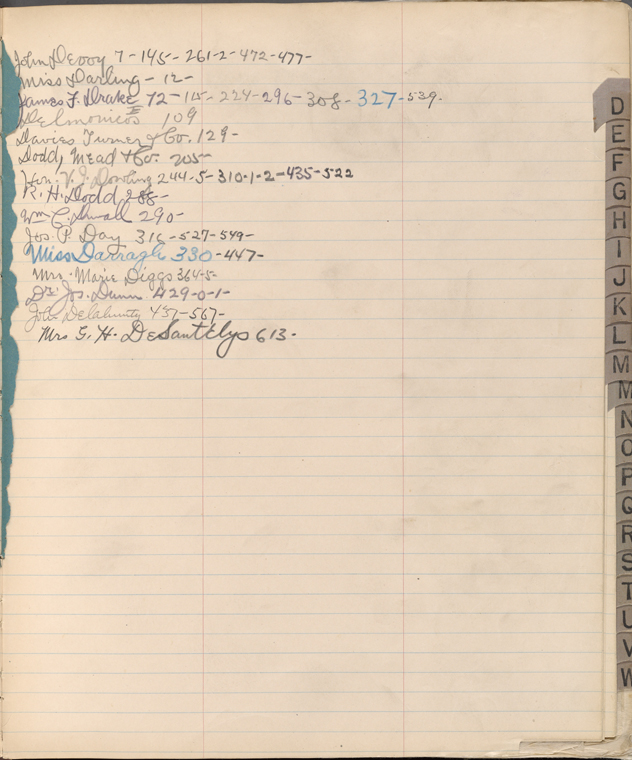 John Devoy 7-145-261-2-472-477-
Miss Darling - 12-
James F. Drake 72-115-224-296-308-327-539.
Delmonicos 109
Davies Turner & Co. 129-
Dodd, Mead & Co. 205-
Hon. V. J. Dowling 244-5-310-1-2-435-522
R. H. Dodd 288-
Wm C. 290-
Jos. P. Day 316-527-549-
Miss Darragh 330-447-
Mrs. Marie Diggs 364-5-
Dr. Jos. Dunn 429-0-1-
John Delahunty 437-567-
Mrs G. H. DeSantclys 613-
D
E
F
G
H
I
J
K
L
M
M
N
O
P
Q
R
S
T
U
V
W